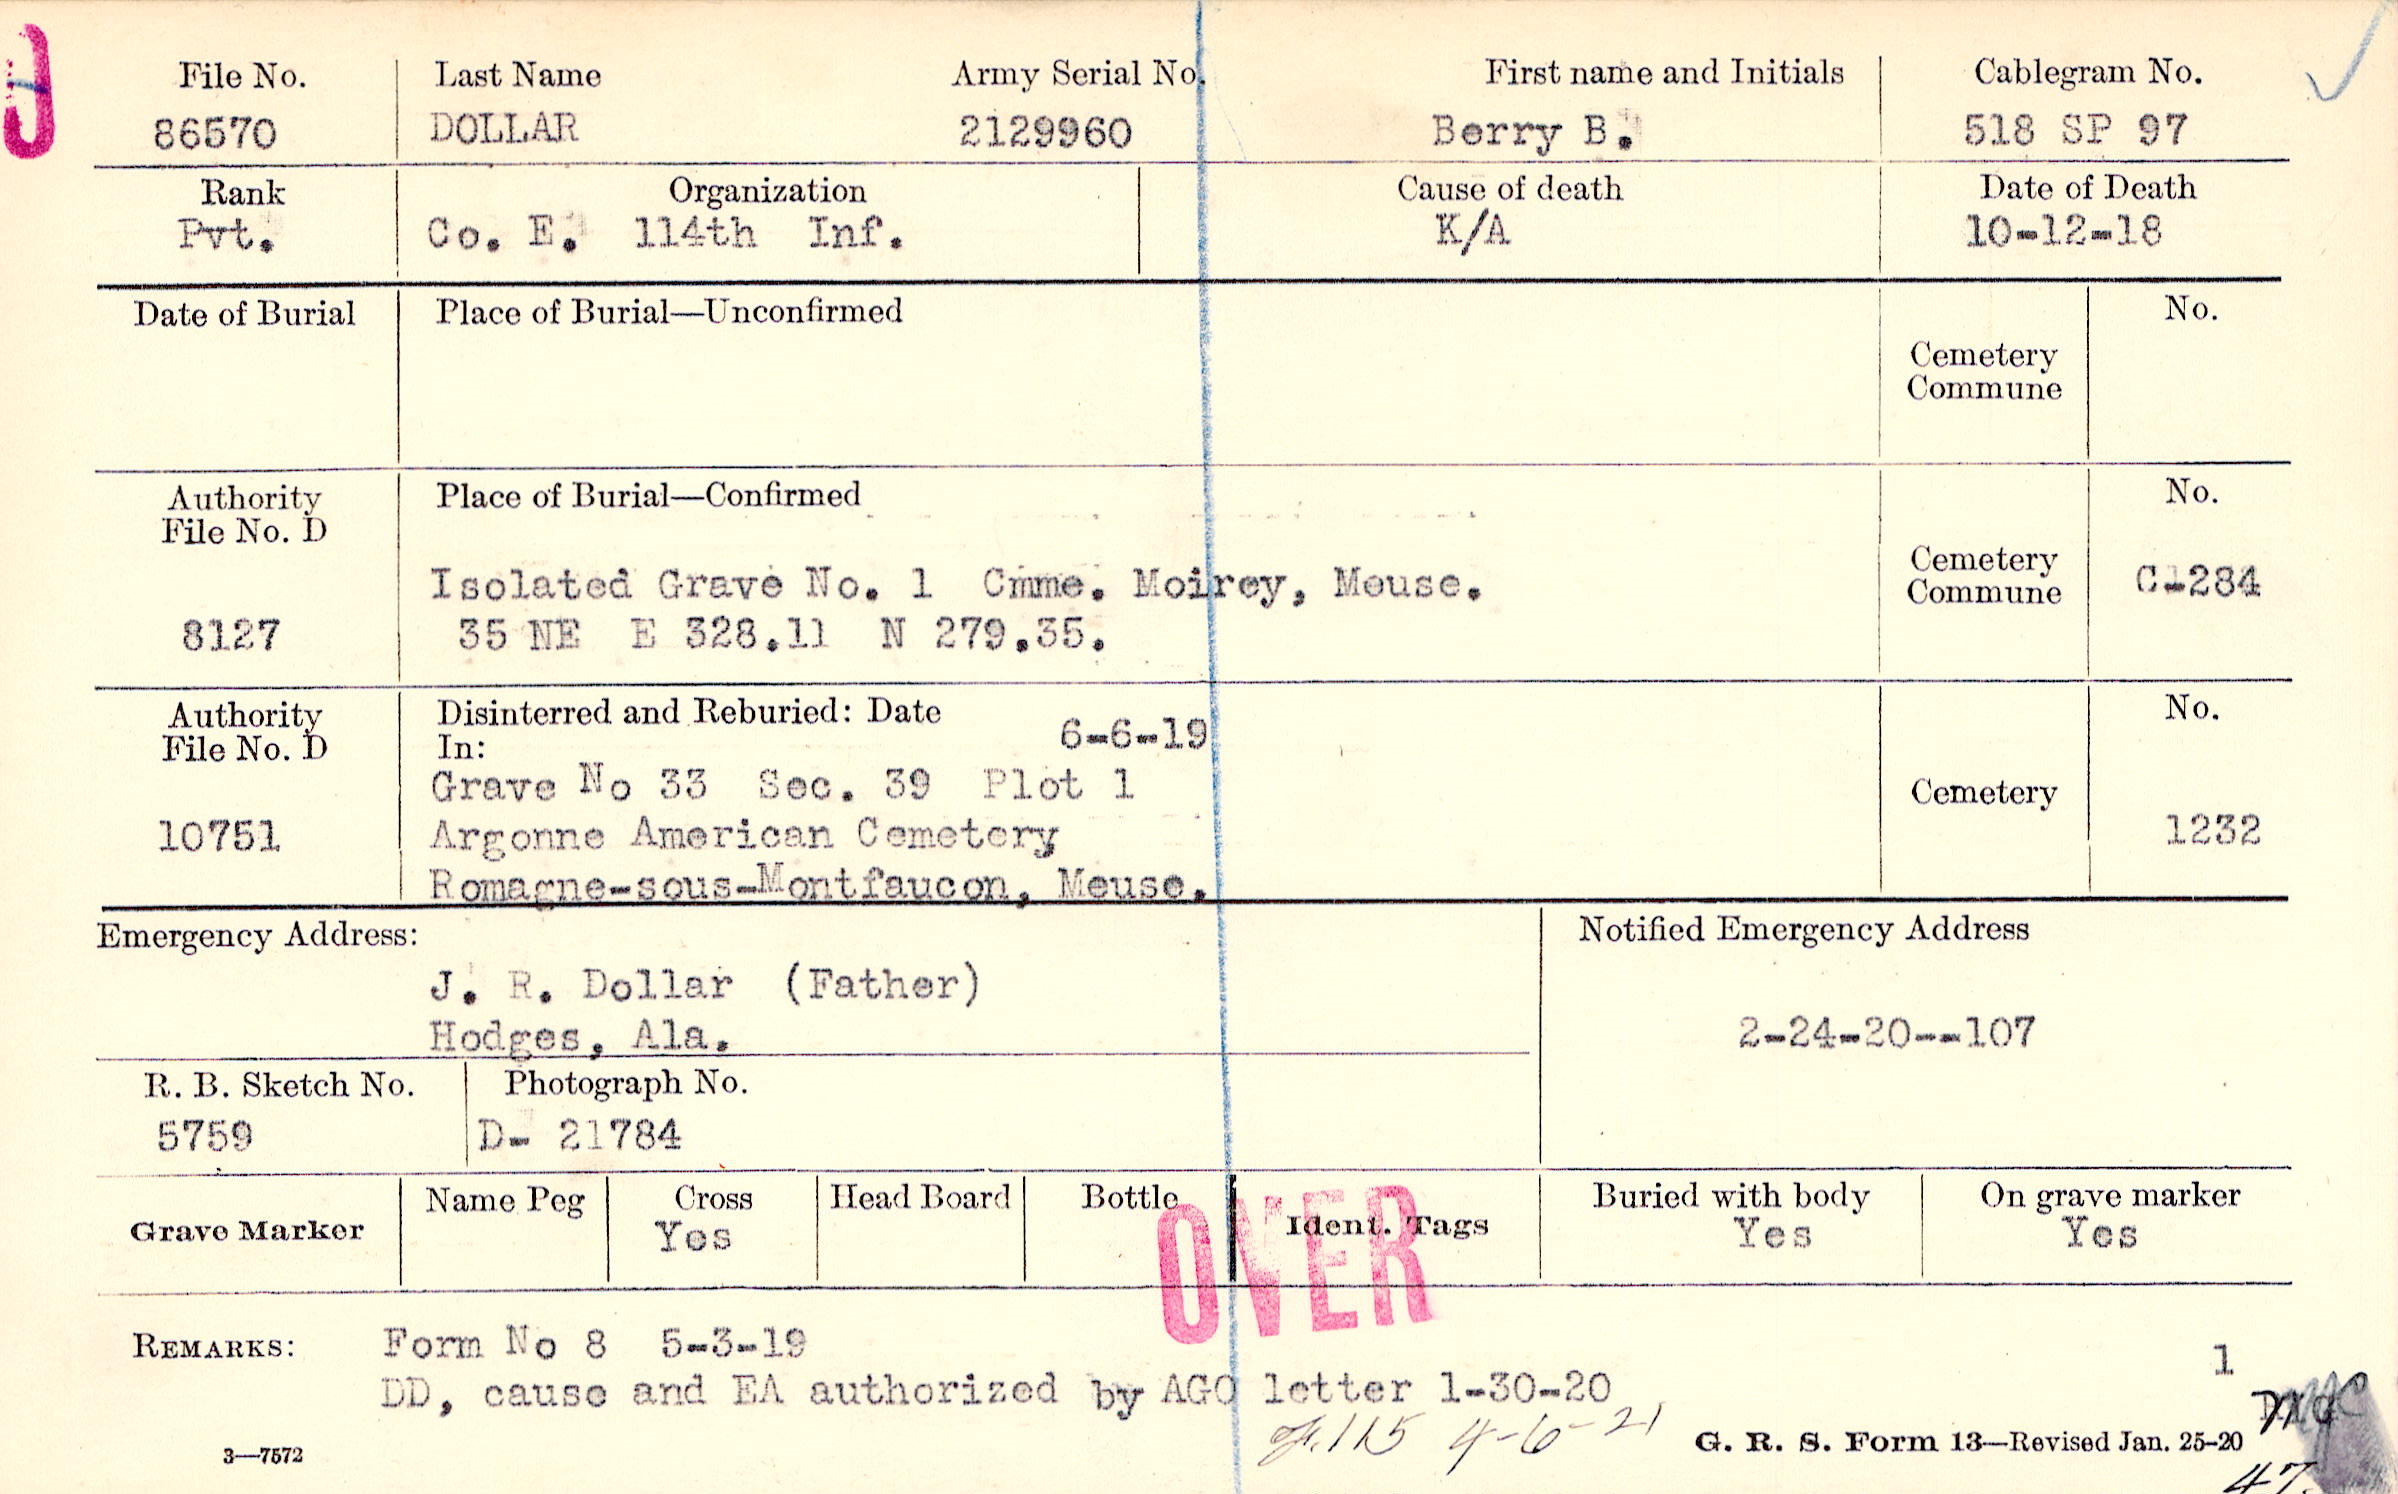 File No. Last Name Army Serial No. First name and Initials Cablegram No.
86570 DOLLAR 2129960 Berry B. 518 SP 97
Rank Organization Cause of death Date of Death
Pvt. Co. E. 114th Inf. K/A 10-12-18
Date of Burial Place of Burial—Unconfirmed No.
Cemetery
Commune
Authority Place of Burial—Confirmed No.
File No. D
Cemetery
Isolated Grave No. 1 Cmme. Moirey, Meuse. Commune C-284
8127 35 NE E 328.11 N 279.35.
Authority Disinterred and Reburied: Date 6-6-19 No.
File No. D In:
Grave No 33 Sec. 39 Plot 1 Cemetery
10751 Argonne American Cemetery 1232
Romagne-sous-Montfaucon, Meuse.
Emergency Address: Notified Emergency Address
J. R. Dollar (Father)
Hodges, Ala. 2-24-20--107
R. B. Sketch No. Photograph No.
5759 D- 21784
Grave Marker Name Peg Cross Head Board Bottle Ident. Tags Buried with body On grave marker
Yes Yes Yes
OVER
REMARKS: Form No 8 5-3-19 1
DD, cause and EA authorized by AGO letter 1-30-20
115 4-6-21
3—7572 G. R. S. Form 13—Revised Jan. 25-20
47.